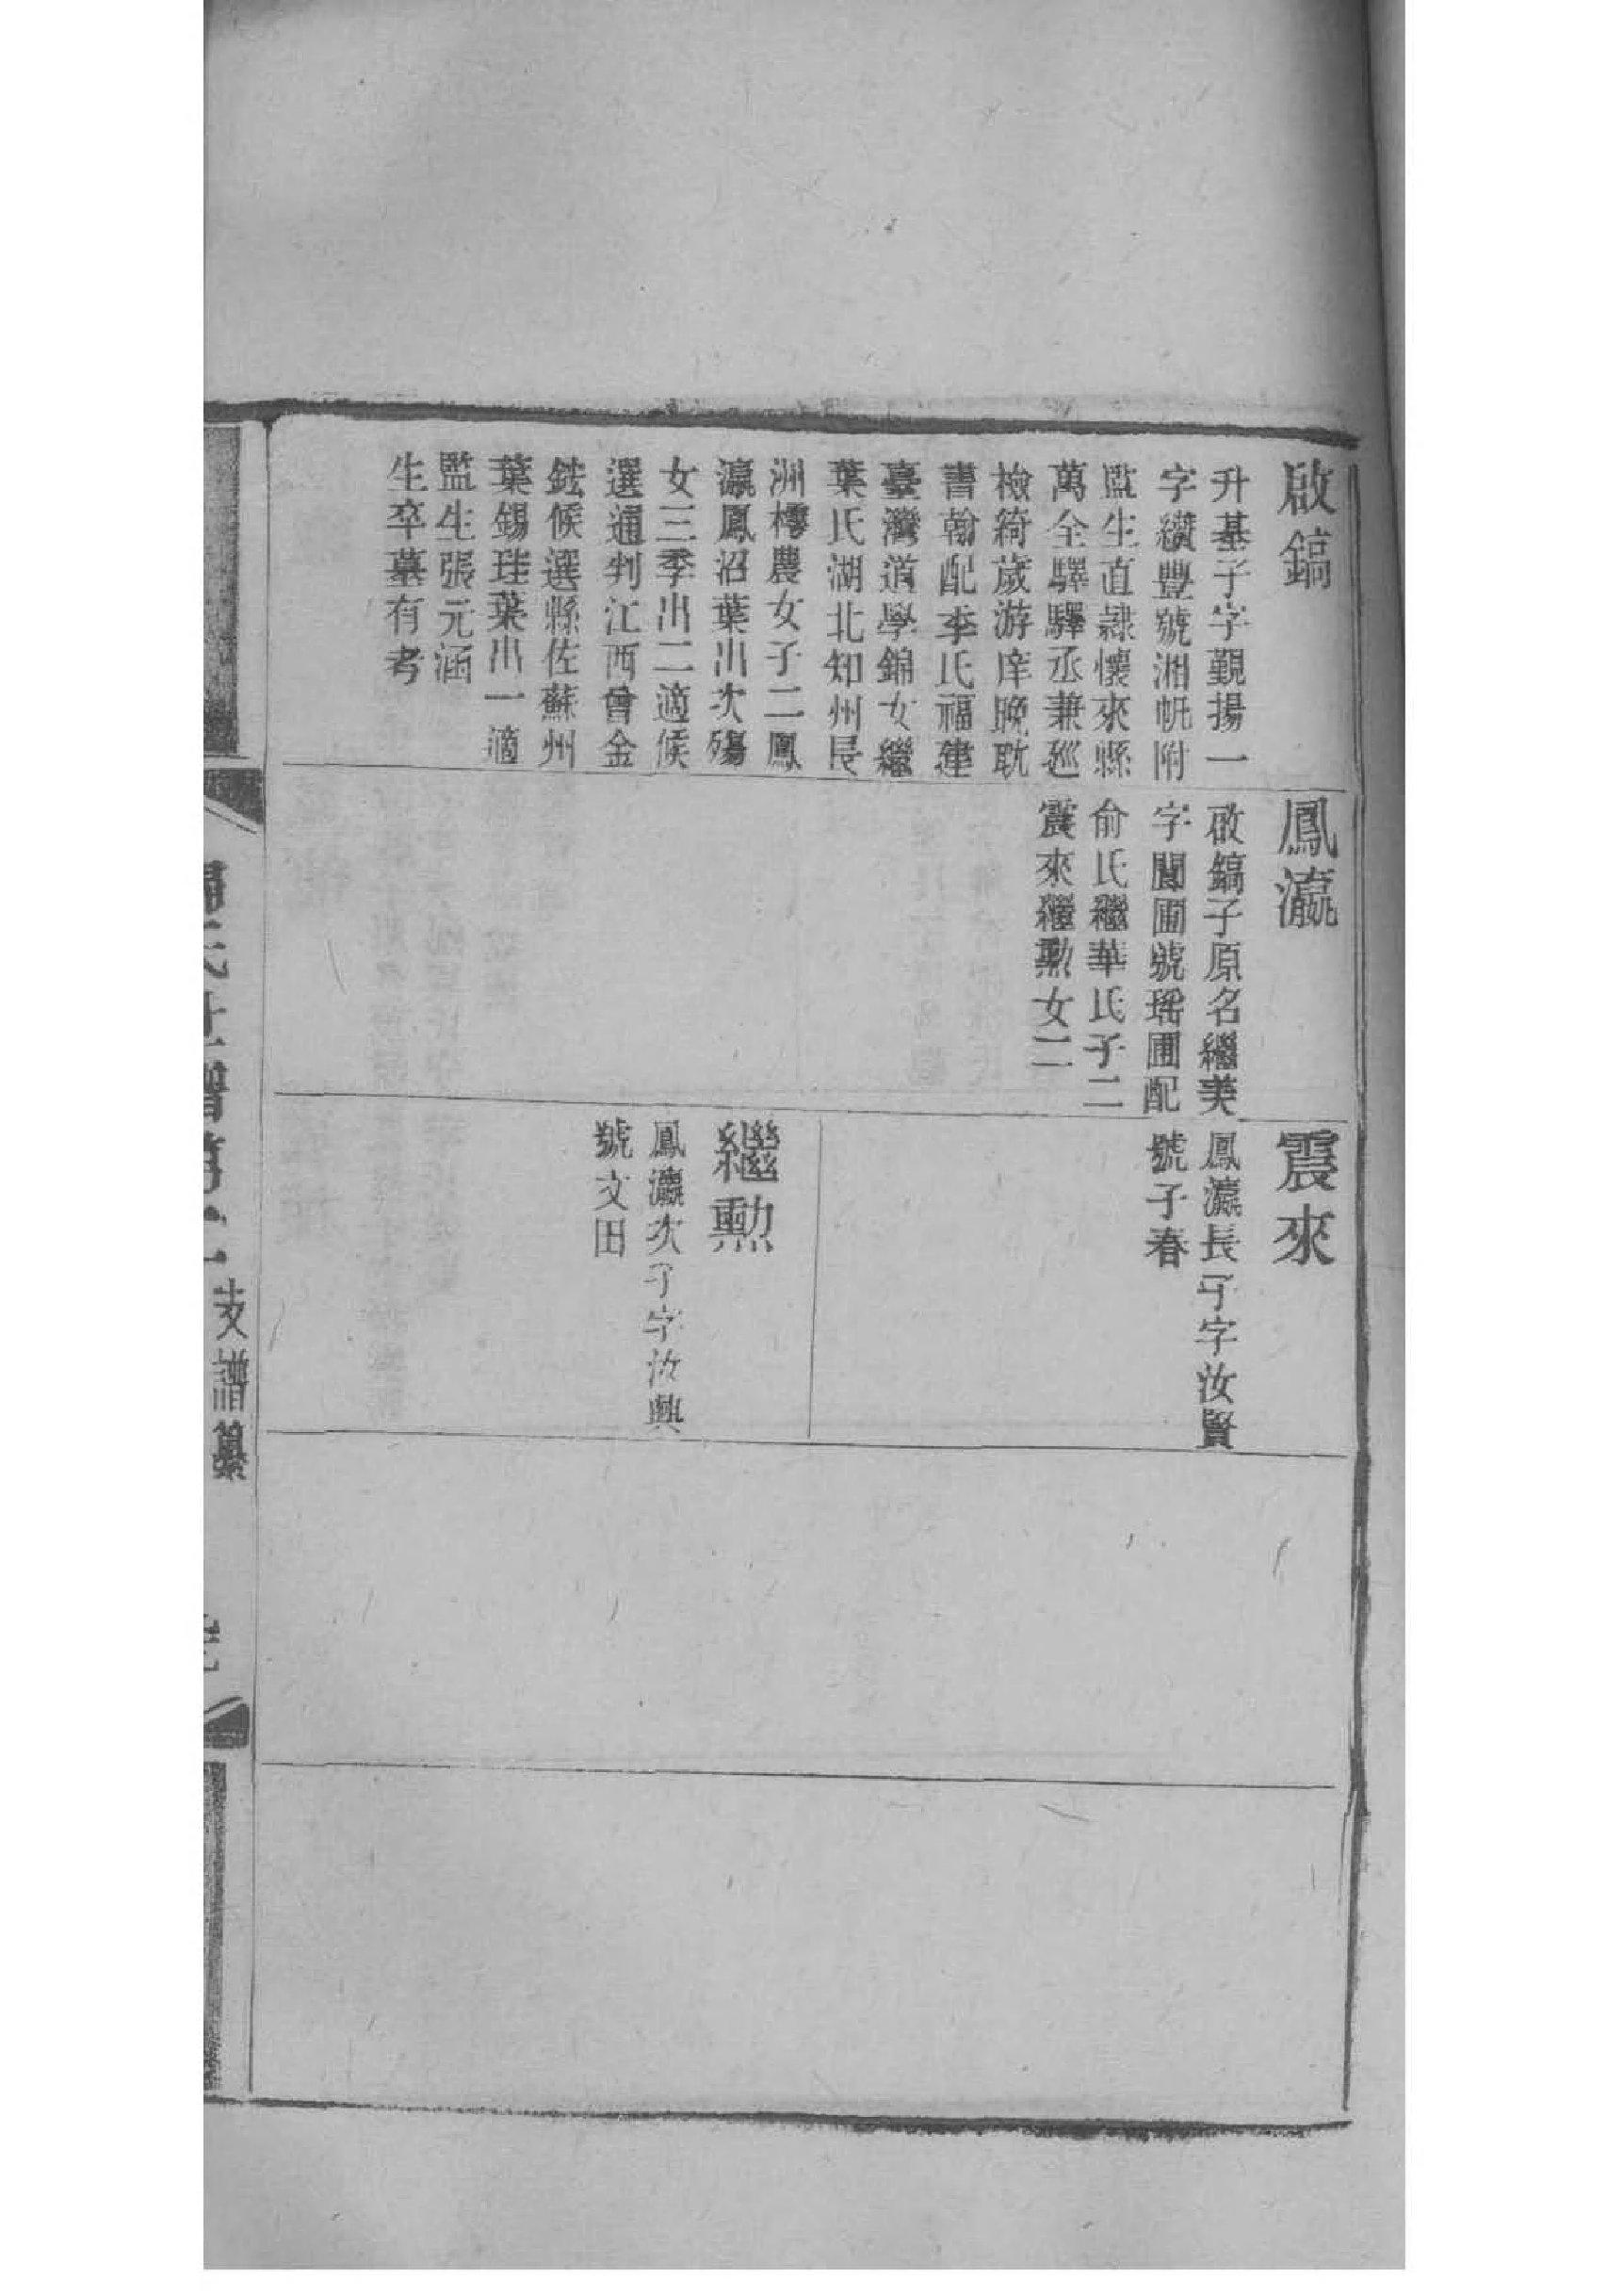 啟鎬
升基子字覲揚一
字纘豐號湘帆附
監生直隷懷來縣
萬全驛驛丞兼巡
檢綺歲游庠晚耽
書翰配季氏福建
臺灣道學錦女繼
葉氏湖北知州長
洲樗農女子二鳳
瀛鳳沼葉出次殤
女三季出二適候
選通判江西曾金
鉣候選縣佐蘇州
葉錫珪葉出一適
監生張元涵
生卒墓有考
鳳瀛
啟鎬子原名繼美
字閬圃號瑤圃配
俞氏繼華氏子二
震來繼勲女二
震來
鳳瀛長子字汝賢
號子春
繼勲
鳳瀛次子字汝興
號文田
氏世譜第二 支譜纂